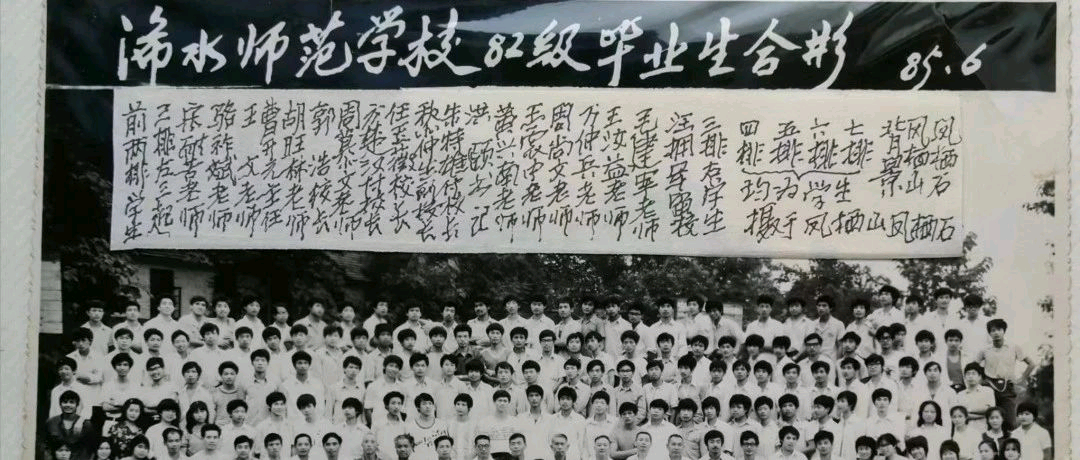 浠水师范学校82级毕业生合影 85.6
前两排学生
三排左三起
宋耐苦老师
骆祚斌老师
王文老师
曹开元主任
胡旺林老师
郭浩校长
周慕文老师
方楚汉付校长
任校长
秋仲生副校长
朱特雄付校长
洪颐书记
黄兴南老师
王宏中老师
周尚文老师
方仲兵老师
王汝益老师
毛建军老师
汪拥军
三排右学生
四排
五排
六排
七排
均为学生
背景
凤栖山
凤栖石
摄于凤栖山凤栖石